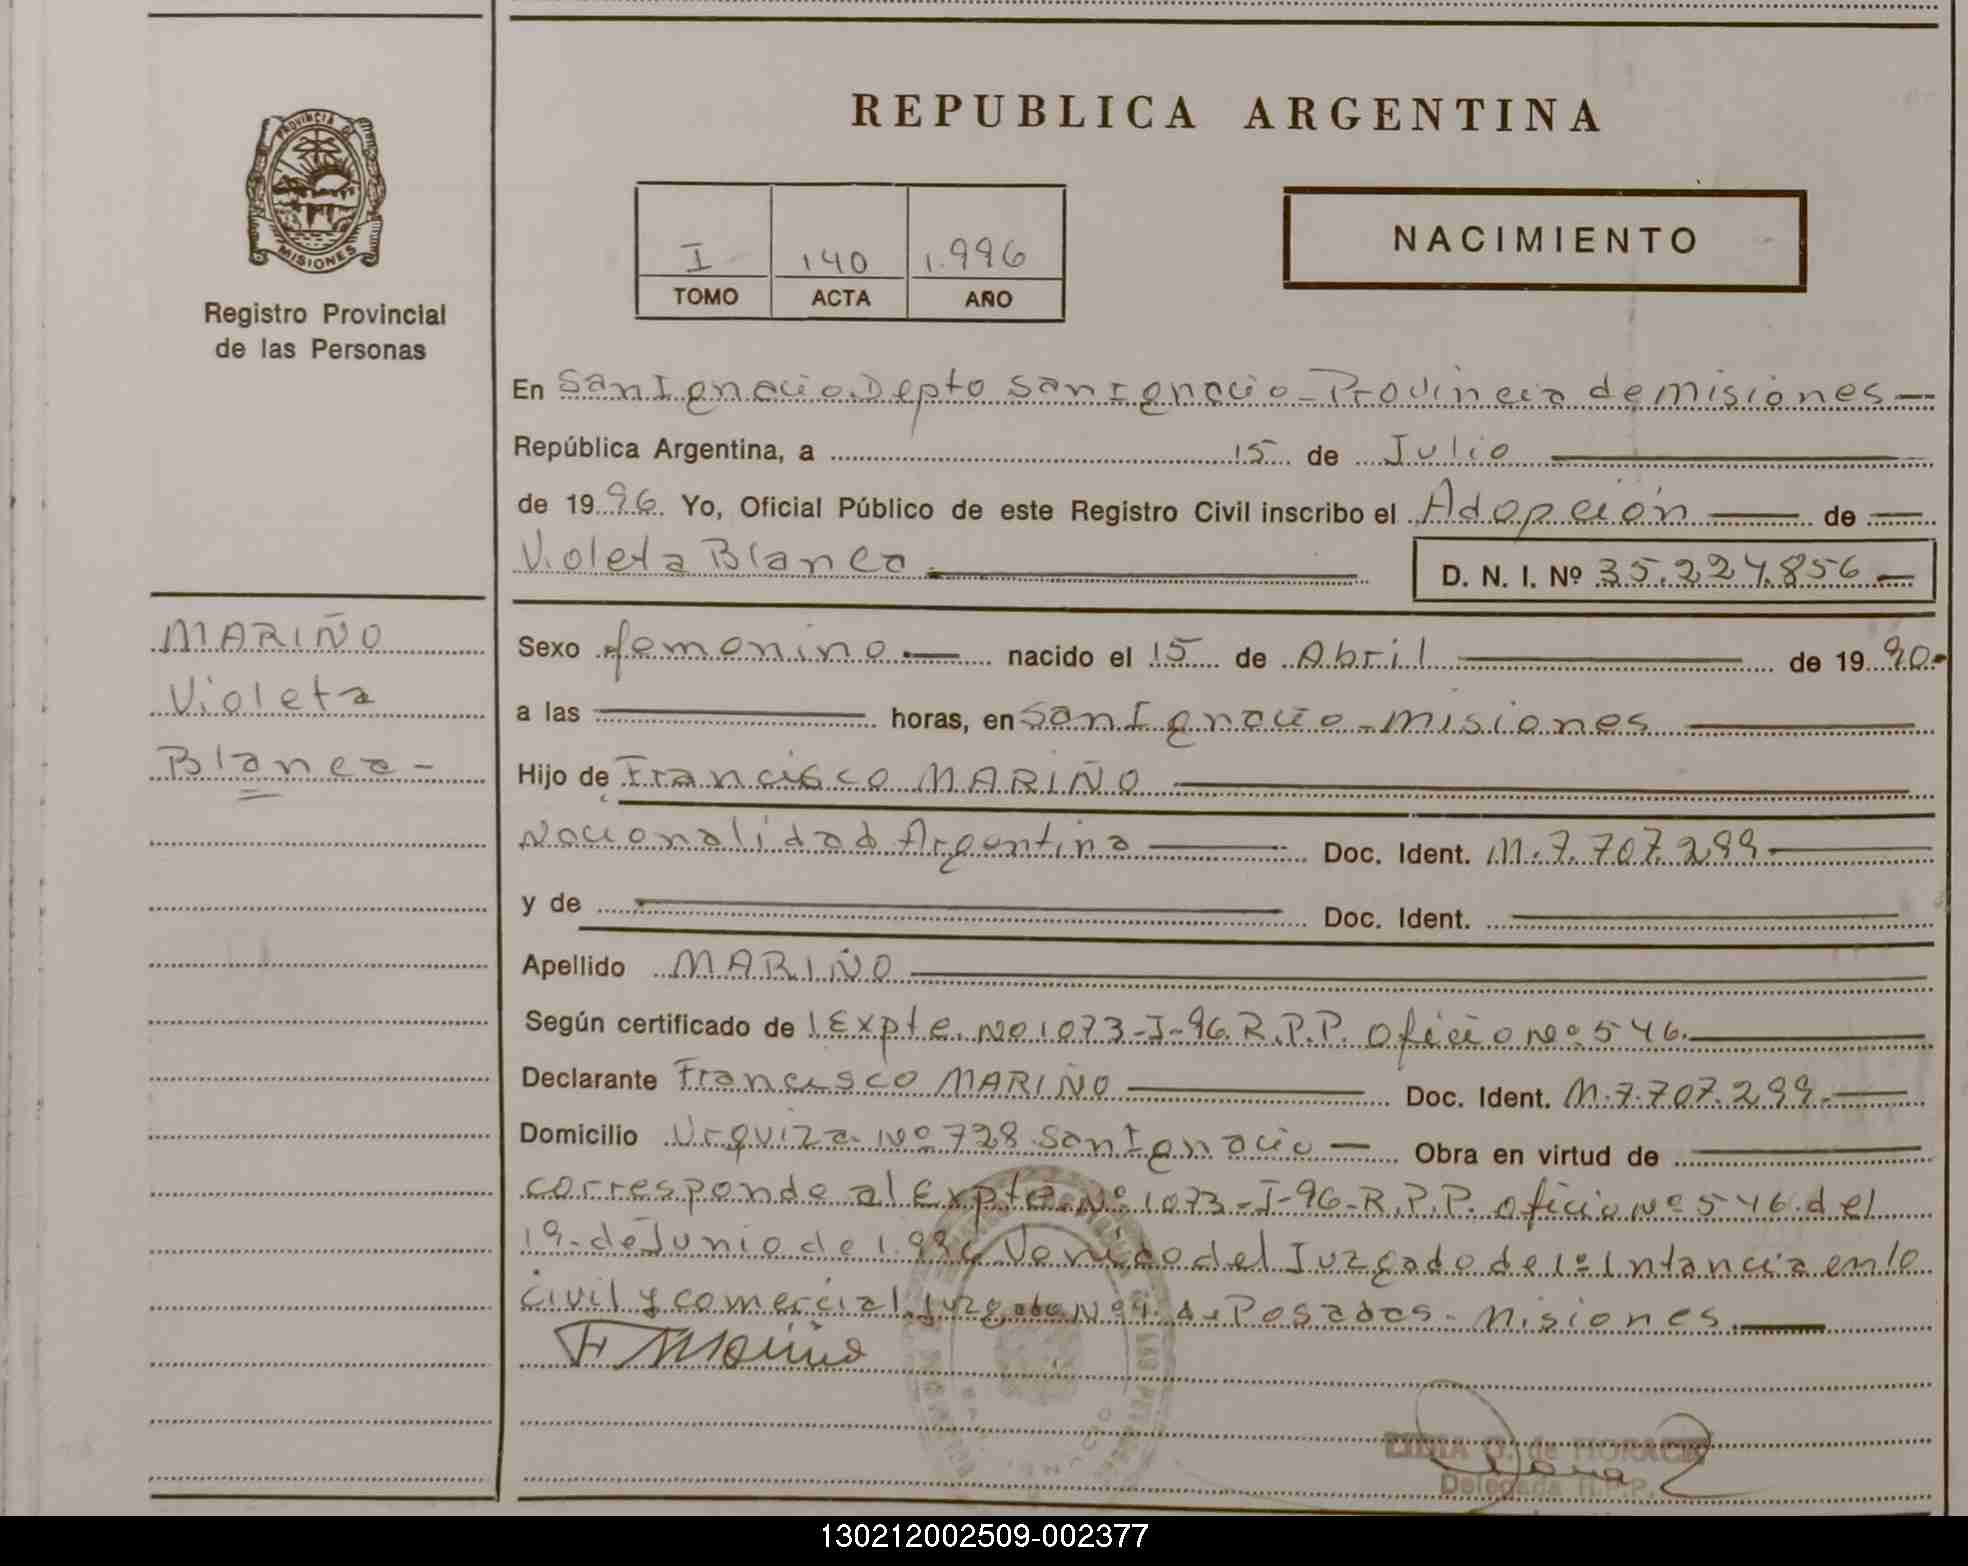 REPUBLICA ARGENTINA
PROVINCIA D
MISIONES
Registro Provincial
de las Personas
I 140 1.996
TOMO ACTA AÑO
NACIMIENTO
En San Ignacio. Depto San Ignacio - Provincia de misiones —
República Argentina, a 15 de Julio
de 1996 Yo, Oficial Público de este Registro Civil inscribo el Adopción — de —
Violeta Blanca
D. N. I. Nº 35.224.856 —
MARIÑO
Violeta
Blanca -
Sexo femenino — nacido el 15 de Abril de 1990 -
a las horas, en San Ignacio - misiones
Hijo de Francisco MARIÑO
Nacionalidad Argentina — Doc. Ident. M. 7.707.299 —
y de Doc. Ident.
Apellido MARIÑO
Según certificado de 1 Expte. No 1073-J-96. R.P.P. Oficio Nº 546.
Declarante Francisco MARIÑO — Doc. Ident. M. 7.707.299. —
Domicilio Urquiza Nº 728 San Ignacio — Obra en virtud de
corresponde al Expte. Nº 1073-J-96-R.P.P. oficio Nº 546 del
19 - de Junio de 1.996 Venido del Juzgado de 1º Intancia en lo
civil y comercial Juzgado Nº 4. de Posadas - Misiones.
F Mariño
de
Delegada R.P.P.
130212002509-002377